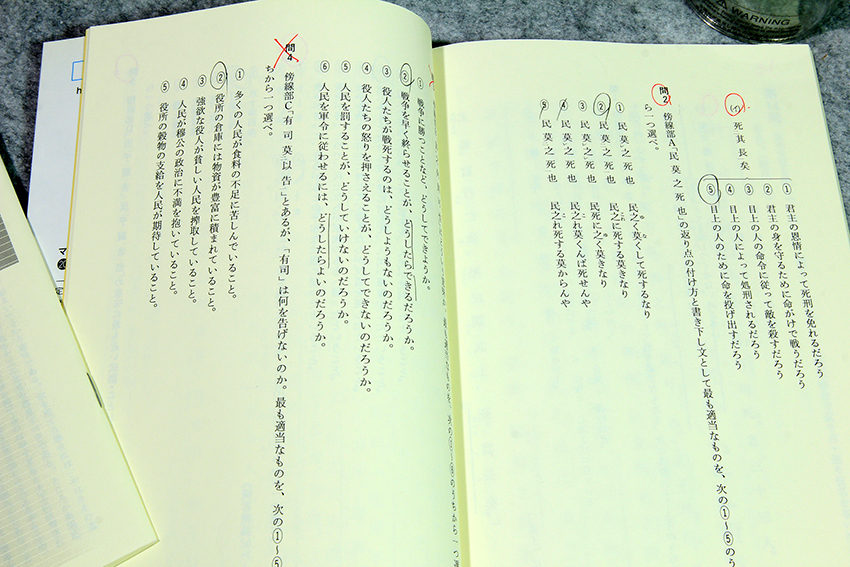 (イ) 死其長矣
① 君主の恩情によって死刑を免れるだろう
② 君主の身を守るために命がけで戦うだろう
③ 目上の人の命令に従って敵を殺すだろう
④ 目上の人によって処刑されるだろう
⑤ 目上の人のために命を投げ出すだろう
問2 傍線部A「民莫之死也」の返り点の付け方と書き下し文として最も適当なものを、次の①〜⑤のう
ら一つ選べ。
① 民莫之死也 民之く莫くして死するなり
② 民莫之死也 民之に死する莫きなり
③ 民莫之死也 民死に之く莫きなり
④ 民莫之死也 民之れ莫くんば死せんや
⑤ 民莫之死也 民之れ死する莫からんや
① 戦争に勝つことなど、どうしてできようか。
② 戦争を早く終らせることが、どうしたらできるだろうか。
③ 役人たちが戦死するのは、どうしようもないのだろうか。
④ 役人たちの怒りを押さえることが、どうしてできないのだろうか。
⑤ 人民を罰することが、どうしていけないのだろうか。
⑥ 人民を軍令に従わせるには、どうしたらよいのだろうか。
問4 傍線部C「有司莫以告」とあるが、「有司」は何を告げないのか。最も適当なものを、次の①〜⑤
ちから一つ選べ。
① 多くの人民が食料の不足に苦しんでいること。
② 役所の倉庫には物資が豊富に積まれていること。
③ 強欲な役人が貧しい人民を搾取していること。
④ 人民が穆公の政治に不満を抱いていること。
⑤ 役所の穀物の支給を人民が期待していること。
WARNING